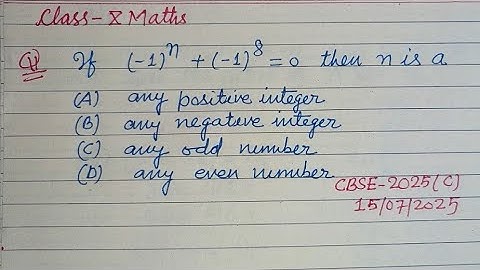 Class-X Maths
Q1 If (-1)ⁿ + (-1)⁸ = 0 then n is a
(A) any positive integer
(B) any negative integer
(C) any odd number
(D) any even number
CBSE-2025(C)
15/07/2025